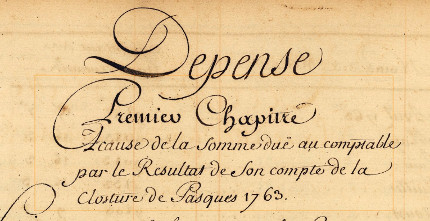 Depense
Premier Chapitre
A cause de la somme duë au comptable
par le Resultat de Son compte de la
Closture de Pasques 1763.